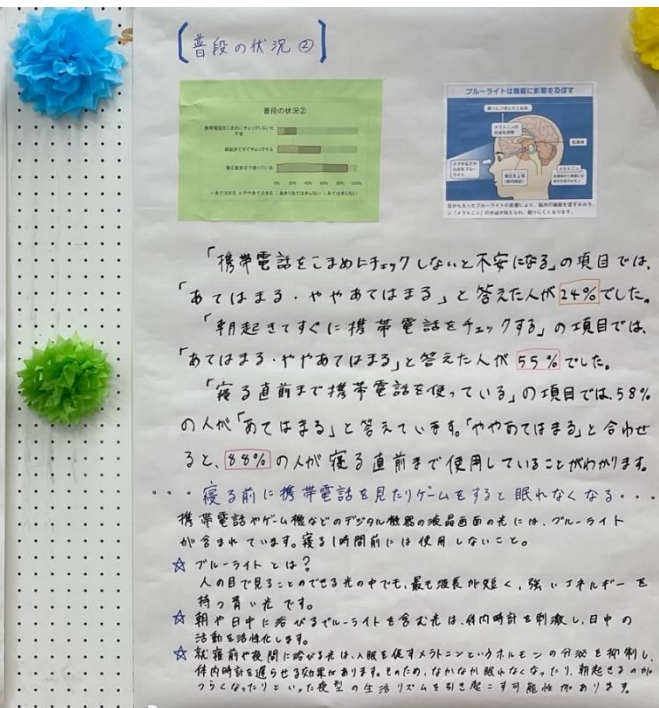 【普段の状況②】
普段の状況②
携帯電話をこまめにチェックしないと
不安
朝起きてすぐチェックする
寝る直前まで使っている
0% 20% 40% 60% 80% 100%
ブルーライトは睡眠に影響を及ぼす
眠りにつきにくくなる
メラトニンの
分泌を抑制
松果体
スマホなどか
らのブルー
ライト
メラトニン
「携帯電話をこまめにチェックしないと不安になる」の項目では、
「あてはまる・ややあてはまる」と答えた人が24%でした。
「朝起きてすぐに携帯電話をチェックする」の項目では、
「あてはまる・ややあてはまる」と答えた人が55%でした。
「寝る直前まで携帯電話を使っている」の項目では、58%
の人が「あてはまる」と答えています。「ややあてはまる」と合わせ
ると、88%の人が寝る直前まで使用していることがわかります。
・・・寝る前に携帯電話を見たりゲームをすると眠れなくなる・・・
携帯電話やゲーム機などのデジタル機器の液晶画面の光には、ブルーライト
が含まれています。寝る1時間前には使用しないこと。
☆ ブルーライトとは?
人の目で見ることのできる光の中でも、最も波長が短く、強いエネルギーを
持つ青い光です。
☆ 朝や日中に浴びるブルーライトを含む光は、体内時計を刺激し、日中の
活動を活性化します。
☆ 就寝前や夜間に浴びる光は、入眠を促すメラトニンというホルモンの分泌を抑制し、
体内時計を遅らせる効果があります。そのため、なかなか眠れなくなったり、朝起きるのが
つらくなったりといった夜型の生活リズムを引き起こす可能性があります。